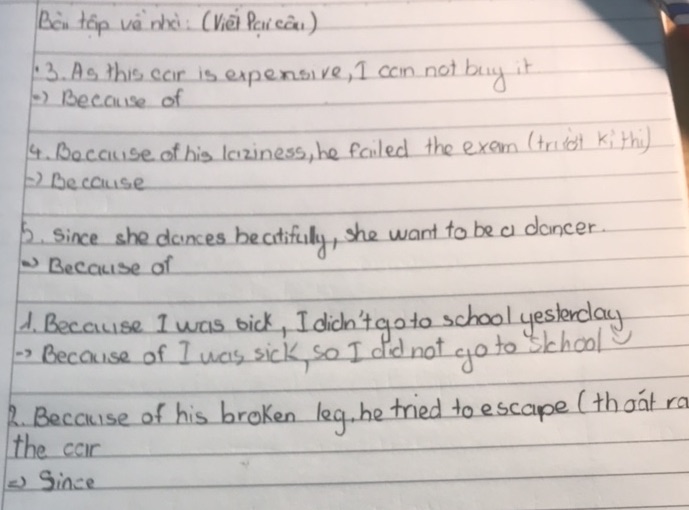 Bài tập về nhà: (Viết lại câu)
3. As this car is expensive, I can not buy it
-> Because of
4. Because of his laziness, he failed the exam (trượt kì thi)
-> Because
5. Since she dances beatifully, she want to be a dancer.
=> Because of
1. Because I was sick, I didn't go to school yesterday
-> Because of I was sick, so I did not go to School
2. Because of his broken leg, he tried to escape (thoát ra
the car
=> Since